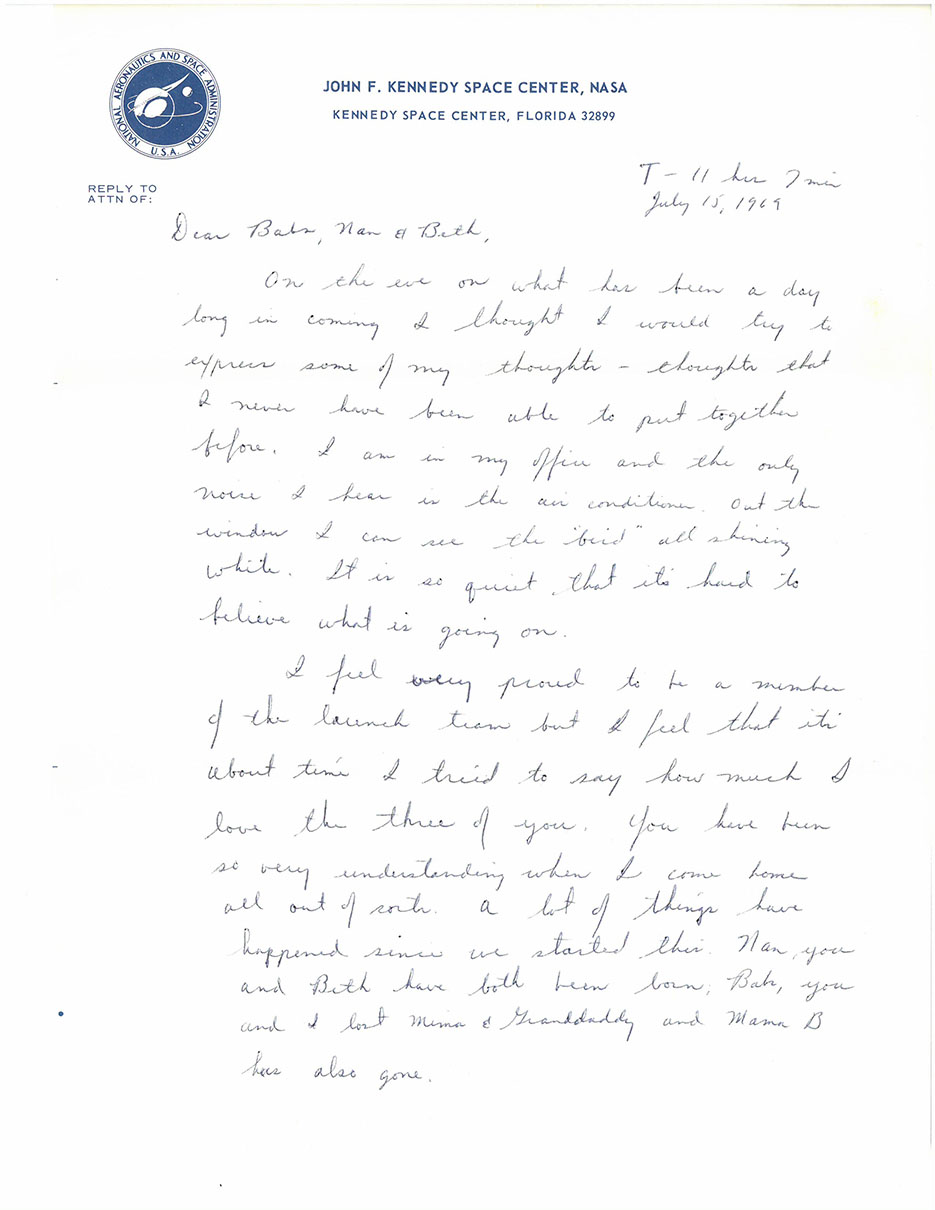 NATIONAL AERONAUTICS AND SPACE ADMINISTRATION
U.S.A.
JOHN F. KENNEDY SPACE CENTER, NASA
KENNEDY SPACE CENTER, FLORIDA 32899
REPLY TO
ATTN OF:
T - 11 hrs 7 min
July 15, 1969
Dear Babs, Nan & Beth,
On the eve on what has been a day
long in coming I thought I would try to
express some of my thoughts - thoughts that
I never have been able to put together
before. I am in my office and the only
noise I hear is the air conditioner. Out the
window I can see the "bird" all shining
white. It is so quiet that it's hard to
believe what is going on.
I feel very proud to be a member
of the launch team but I feel that it's
about time I tried to say how much I
love the three of you. You have been
so very understanding when I come home
all out of sorts. A lot of things have
happened since we started this. Nan, you
and Beth have both been born; Babs, you
and I lost Mima & Granddaddy and Mama B
has also gone.